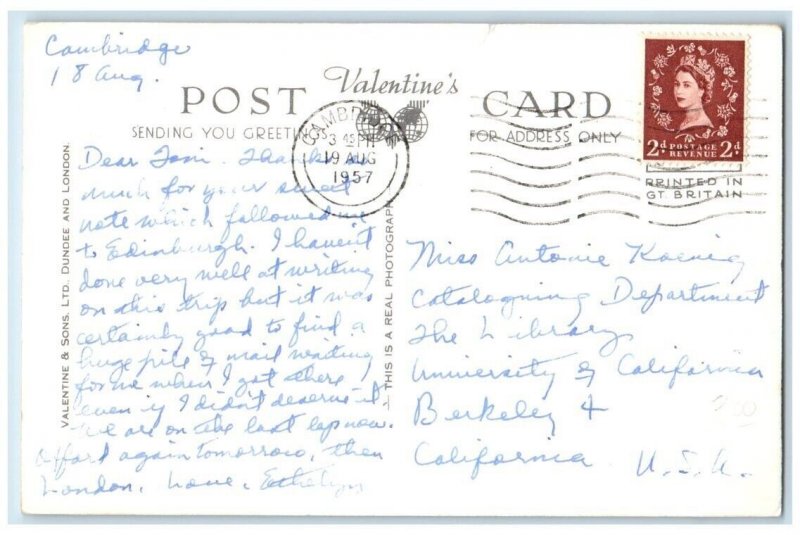 Cambridge
18 Aug.
Valentine's
POST CARD
SENDING YOU GREETINGS
FOR ADDRESS ONLY
CAMBRIDGE
3 45 PM
19 AUG
1957
2d POSTAGE 2d
REVENUE
PRINTED IN
GT. BRITAIN
Dear Toni. Thanks so
much for your sweet
note which followed me
to Edinburgh. I haven't
done very well at writing
on this trip but it was
certainly good to find a
huge pile of mail waiting
for me when I got there,
even if I didn't deserve it.
We are on the last lap now.
Oxford again tomorrow, then
London. Love,
VALENTINE & SONS, LTD. DUNDEE AND LONDON.
THIS IS A REAL PHOTOGRAPH
Miss Antonie Koenig
Cataloguing Department
The Library
University of California
Berkeley 4
California. U.S.A.